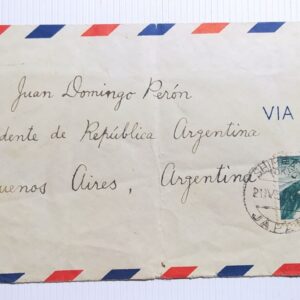 Juan Domingo Perón
dente de República Argentina
uenos Aires, Argentina
VIA
JAPA